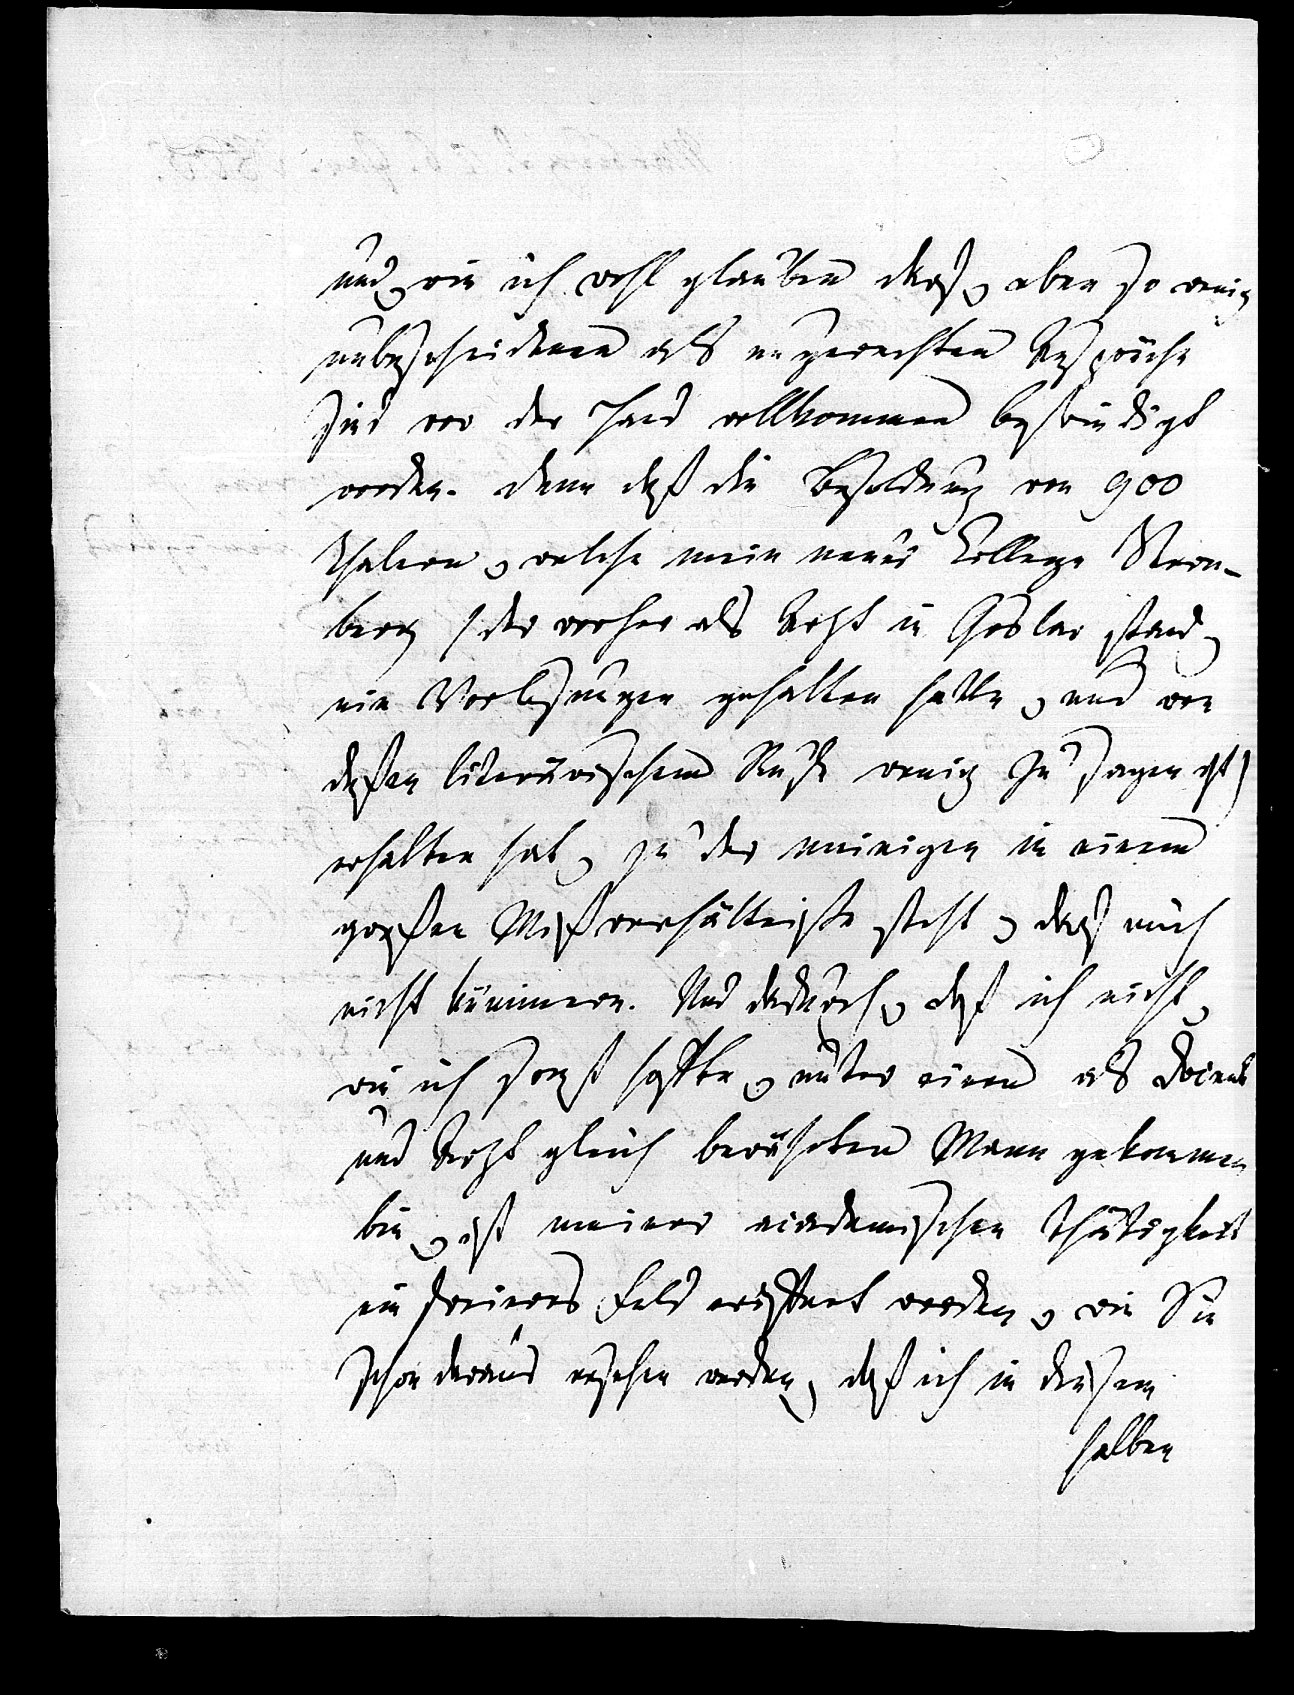 und, wie ich wohl glauben darf, eben so wenig
unbescheidenen als ungerechten Ansprüche
sind vor der Hand vollkommen befriedigt
worden. Denn daß die Besoldung von 900
Thalern, welche mein neuer College Stern-
berg (der vorher als Arzt in Goslar stand,
nie Vorlesungen gehalten hatte, und von
deßen literärischem Rufe wenig zu sagen ist)
erhalten hat, zu der meinigen in einem
großen Mißverhältniße steht, darf mich
nicht kümmern. Und dadurch, daß ich nicht,
wie ich sonst hoffte, unter einen als Docent
und Arzt gleich berühmten Mann gekommen
bin, ist meiner academischen Thätigkeit
ein freieres Feld eröffnet worden, wie Sie
schon daraus ersehen werden, daß ich in diesem
halben